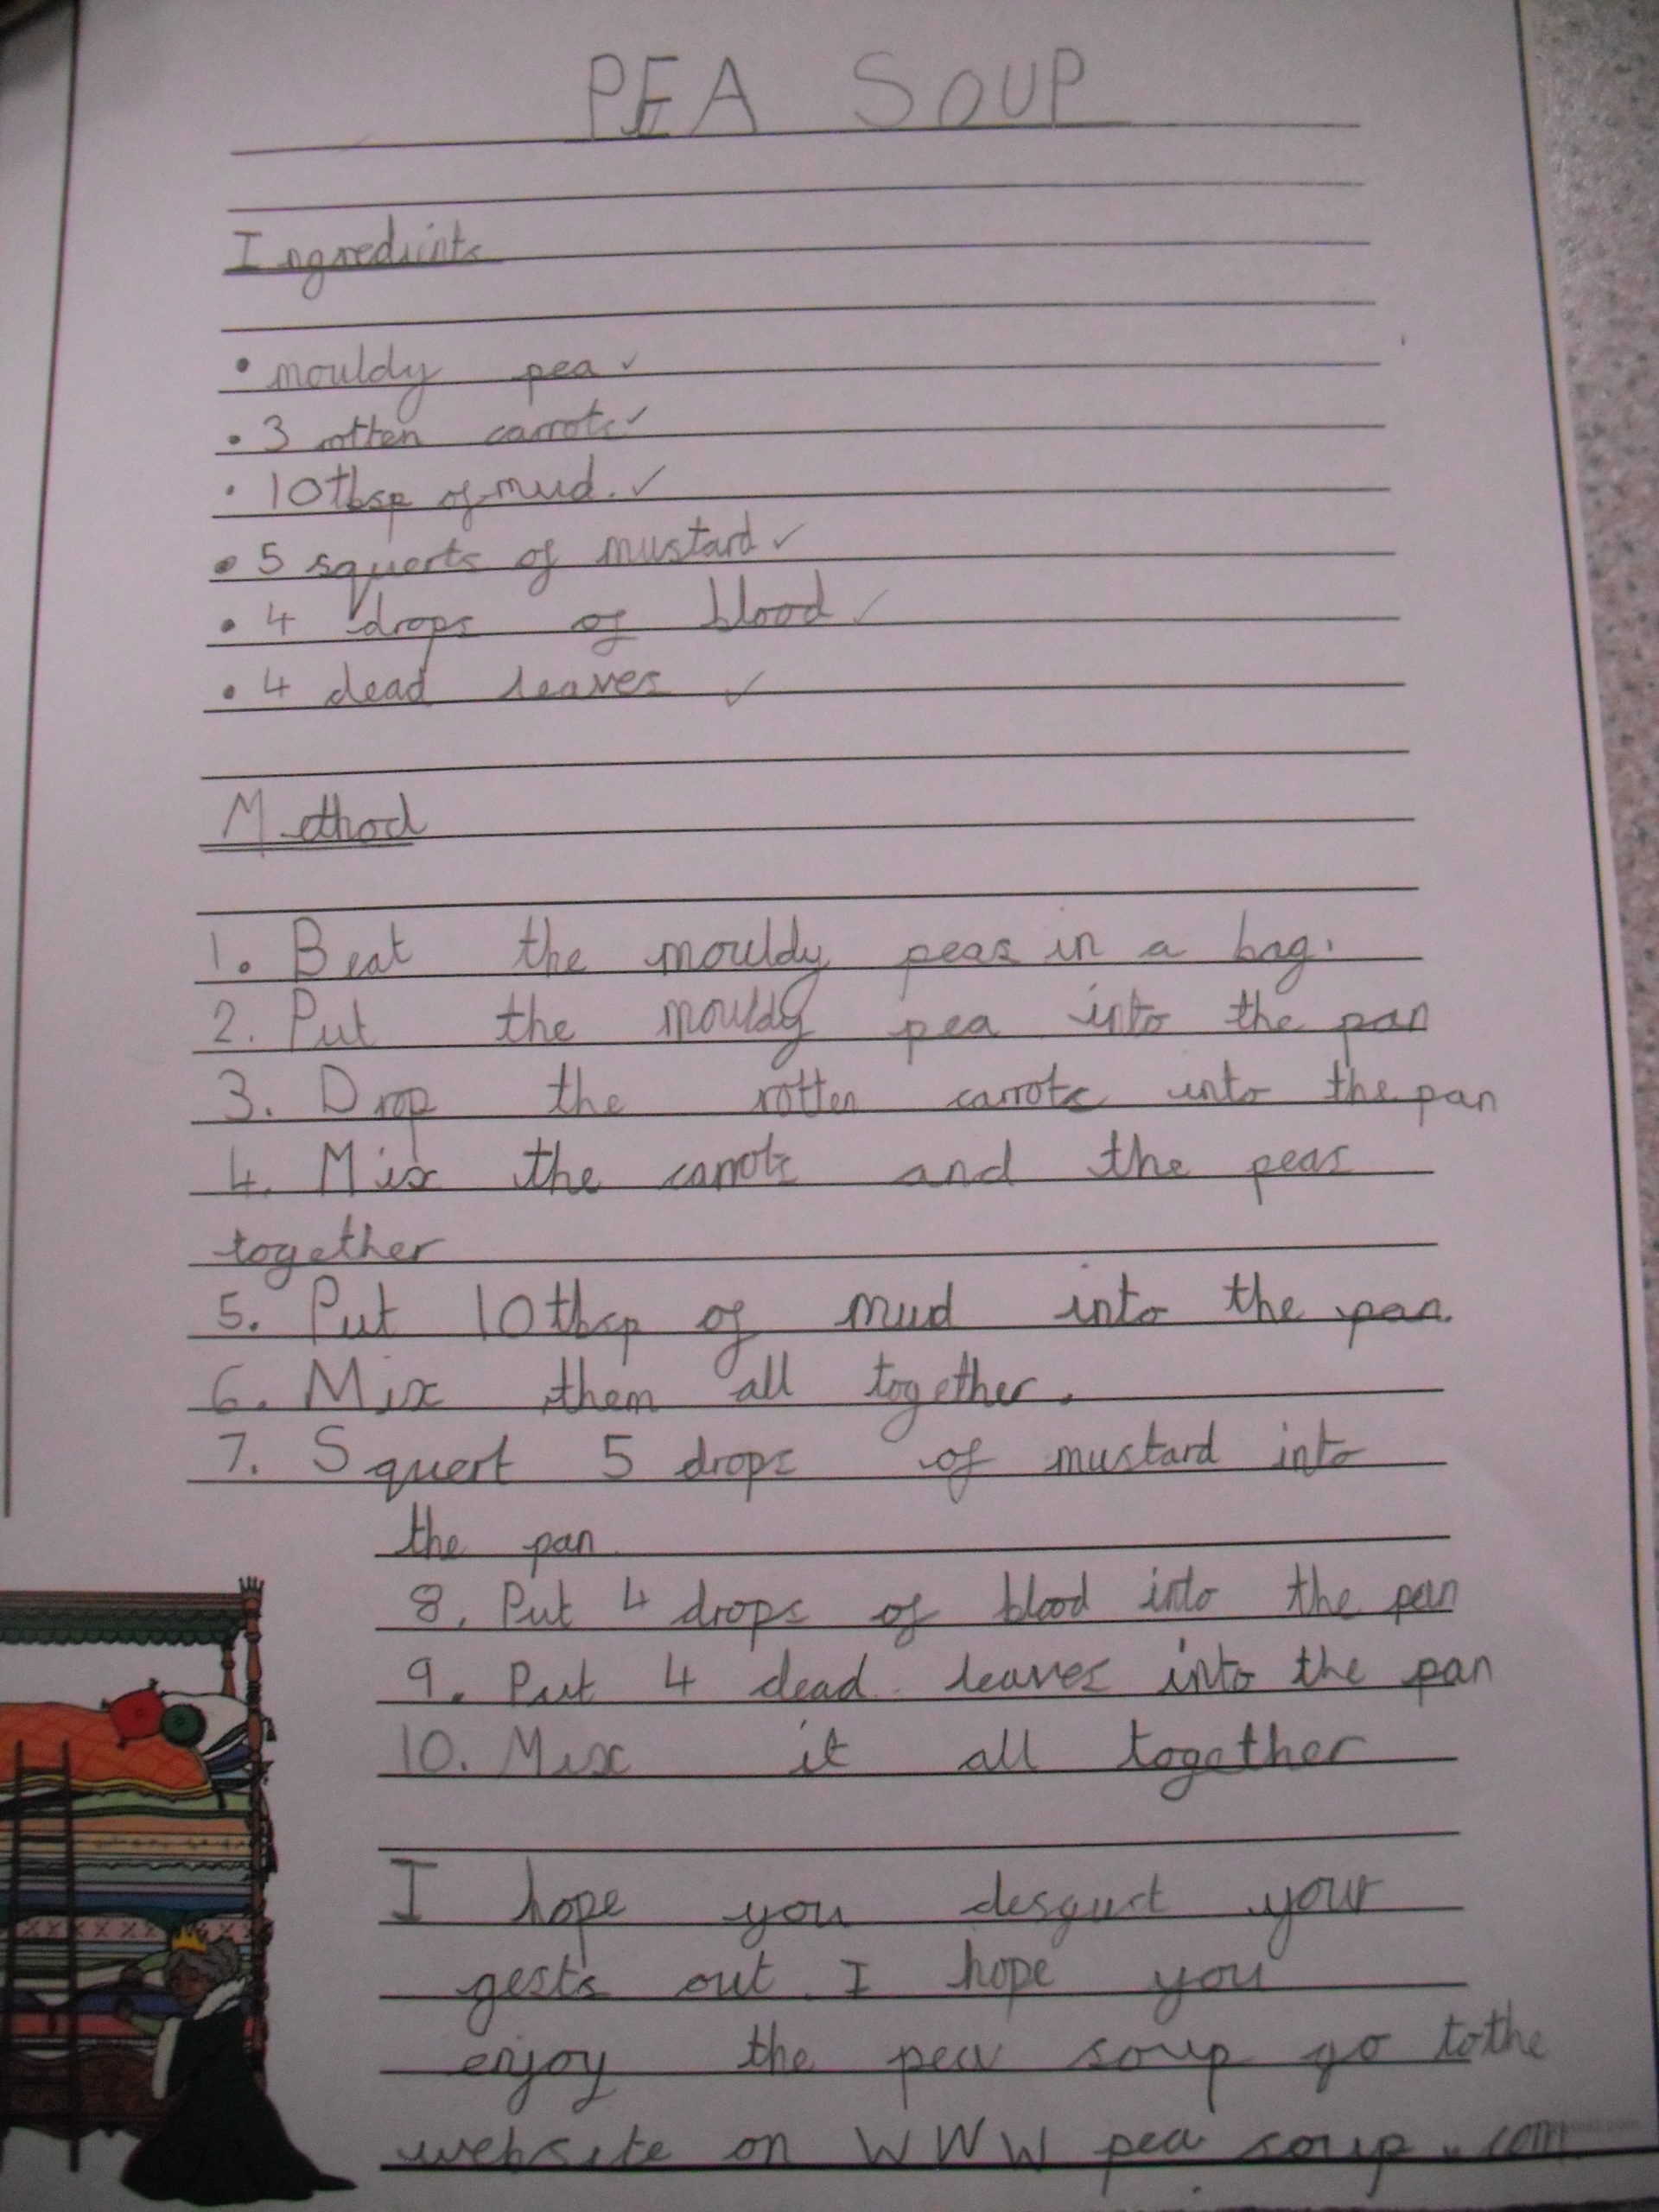 PEA SOUP
Ingreduints
• mouldy pea ✓
• 3 rotten carrots ✓
• 10tbsp of mud. ✓
• 5 squerts of mustard ✓
• 4 drops of blood ✓
• 4 dead leaves ✓
Method
1. Beat the mouldy peas in a bag.
2. Put the mouldy pea into the pan
3. Drop the rotten carrots into the pan
4. Mix the carrots and the peas
together
5. Put 10tbsp of mud into the pan.
6. Mix them all together.
7. Squert 5 drops of mustard into
the pan.
8. Put 4 drops of blood into the pan
9. Put 4 dead leaves into the pan
10. Mix it all together
I hope you desgust your
gests out. I hope you
enjoy the pea soup go to the
website on WWW pea soup . com